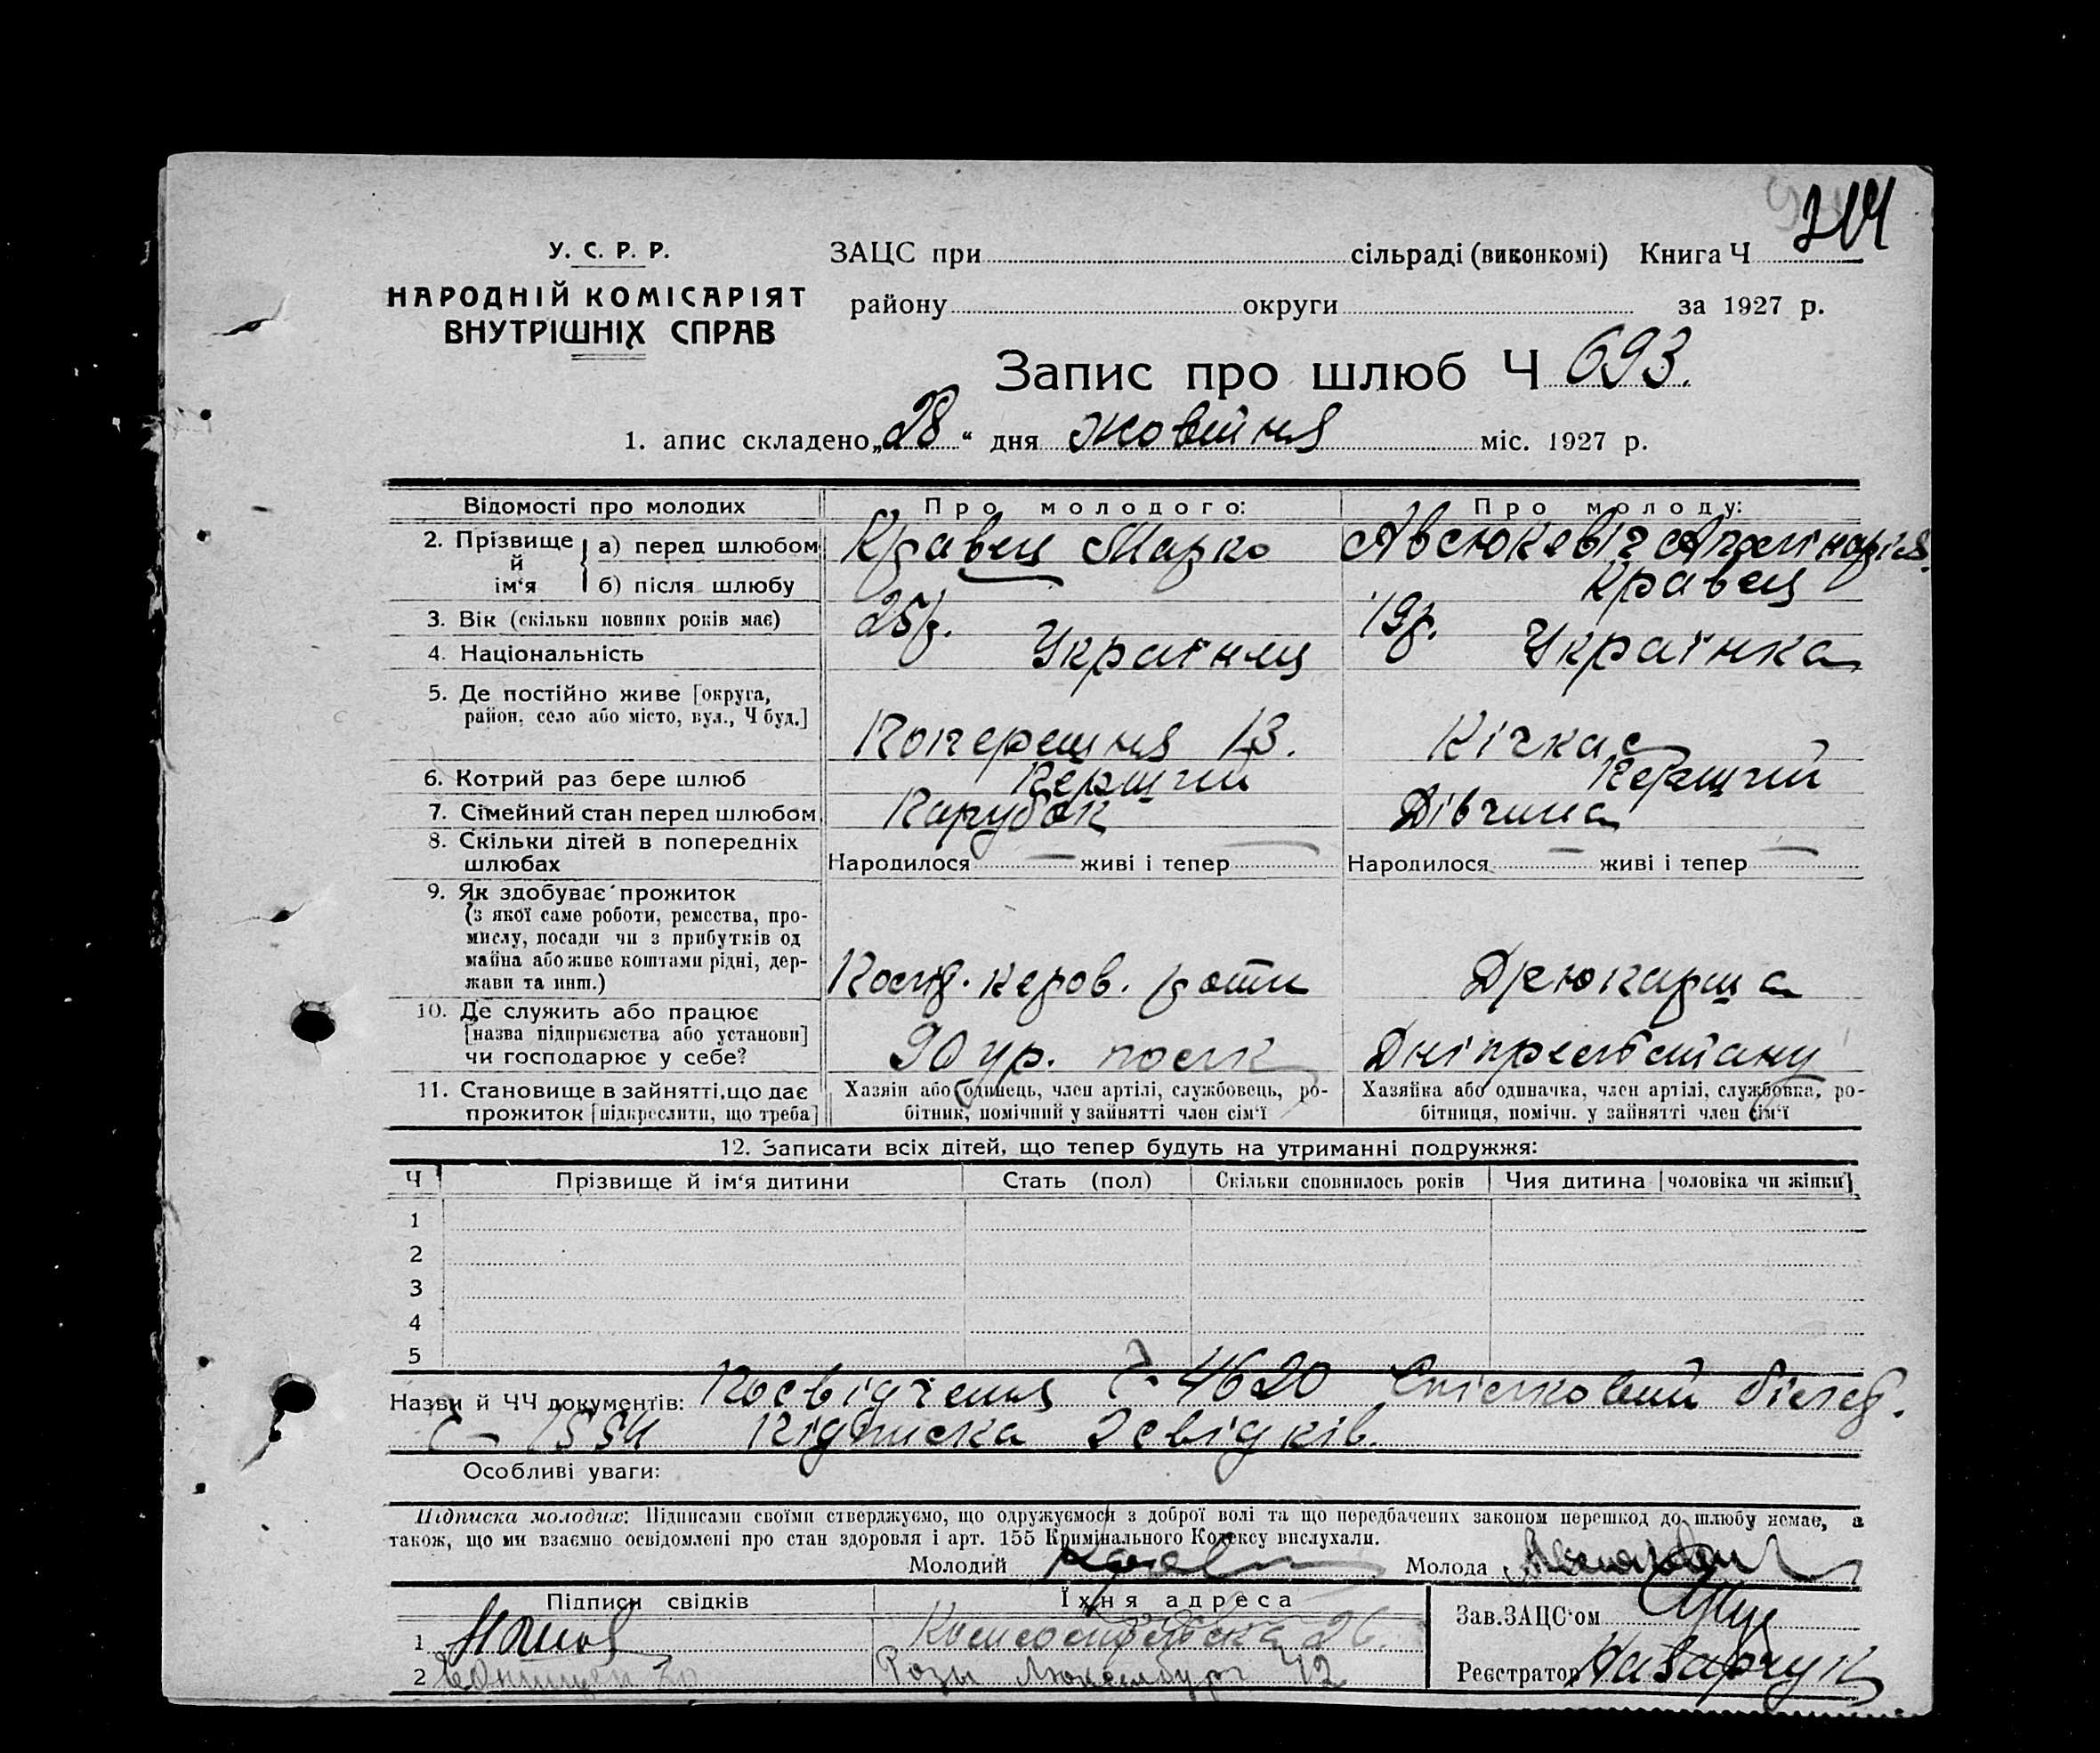 314
У. С. Р. Р.
НАРОДНІЙ КОМІСАРІЯТ
ВНУТРІШНІХ СПРАВ
ЗАЦС при сільраді (виконкомі) Книга Ч
району округи за 1927 р.
Запис про шлюб Ч 693.
1. апис складено „28“ дня жовтня міс. 1927 р.
Відомості про молодих Про молодого: Про молоду:
2. Прізвище й ім‘я а) перед шлюбом Кравец Марко Авсюкевіч
б) після шлюбу Кравец
3. Вік (скільки повних років має) 25р. 19р.
4. Національність Українец Українка
5. Де постійно живе [округа,
район, село або місто, вул., Ч буд.] 13. Кічкас
6. Котрий раз бере шлюб Перший Перший
7. Сімейний стан перед шлюбом Парубок Дівчина
8. Скільки дітей в попередніх
шлюбах Народилося — живі і тепер — Народилося — живі і тепер —
9. Як здобуває прожиток
(з якої саме роботи, ремества, про-
мислу, посади чи з прибутків од
майна або живе коштами рідні, дер-
жави та инш.) роти Дрюкарша
10. Де служить або працює
[назва підприємства або установи]
чи господарює у себе? 90 ур. полк
11. Становище в зайнятті, що дає
прожиток [підкреслити, що треба]
Хазяін або одинець, член артілі, службовець, ро-
бітник, помічний у зайнятті член сім‘ї
Хазяйка або одиначка, член артілі, службовка, ро-
бітниця, помічн. у зайнятті член сім‘ї
12. Записати всіх дітей, що тепер будуть на утриманні подружжя:
Ч Прізвище й ім‘я дитини Стать (пол) Скільки сповнилось років Чия дитина [чоловіка чи жінки]
1
2
3
4
5
Назви й ЧЧ документів: Посвідченя Ч- 4620 Спілковий білєт.
Ч- 1554 Підписка 2 свідків.
Особливі уваги:
Підписка молодих: Підписами своїми стверджуємо, що одружуємося з доброї волі та що передбачених законом перешкод до шлюбу немає, а
також, що ми взаємно освідомлені про стан здоровля і арт. 155 Кримінального Кодексу вислухали.
Молодий Молода
Підписи свідків Їхня адреса
1 26.
2 Рози Люксембург 42
Зав. ЗАЦС‘ом
Реєстратор Назарчук